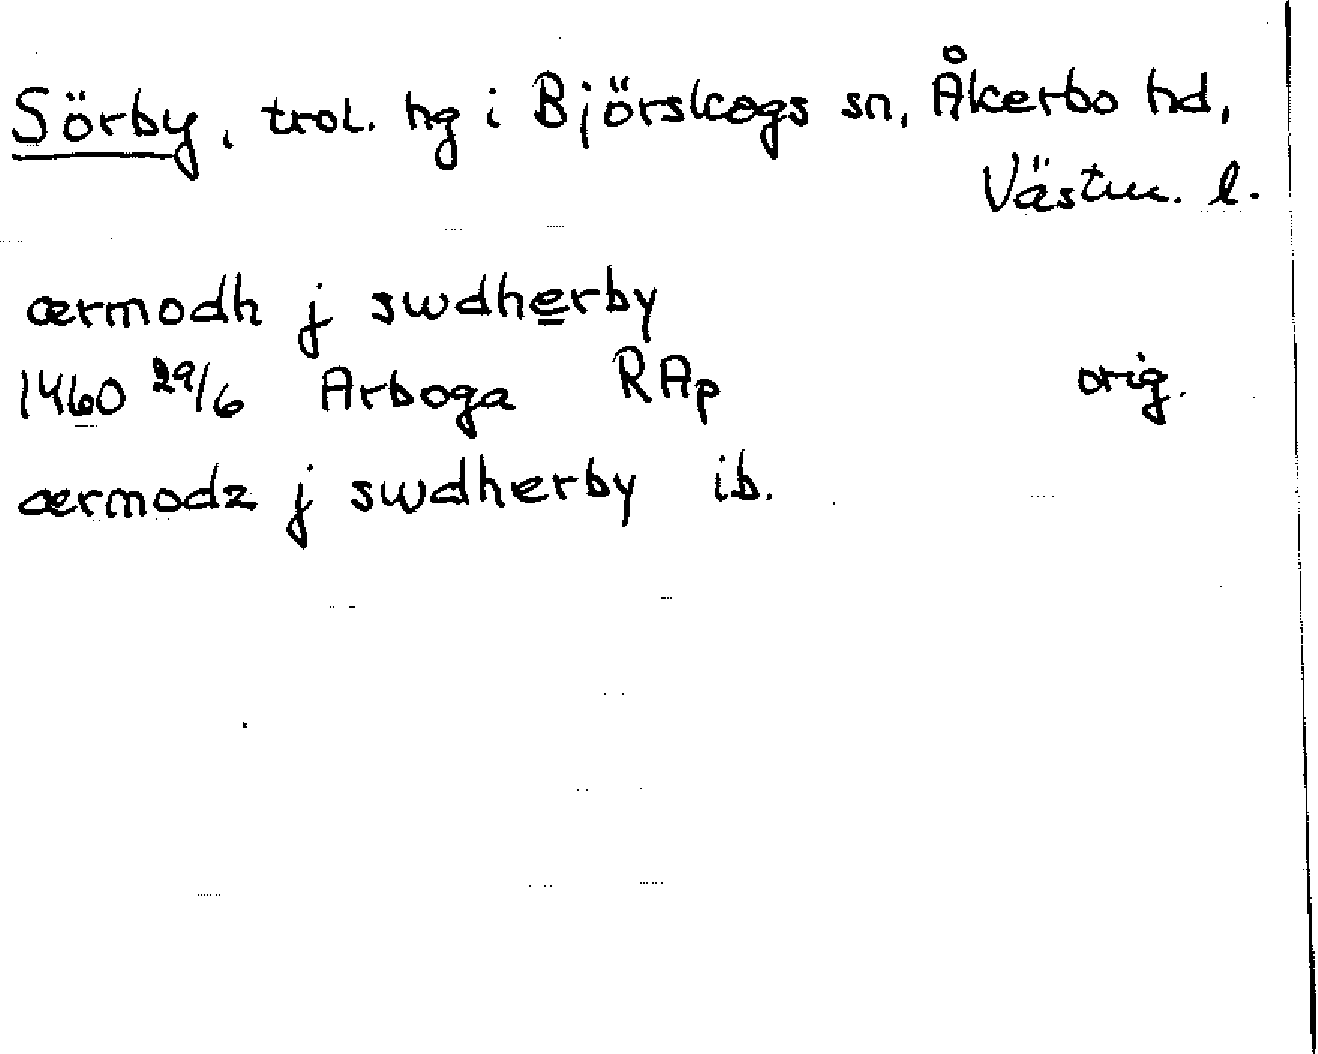 Sörby, trol. hg i Björskogs sn, Åkerbo hd,
Västm. l.
ærmodh j swdherby
1460 29/6 Arboga RAp orig.
ærmodz j swdherby ib.